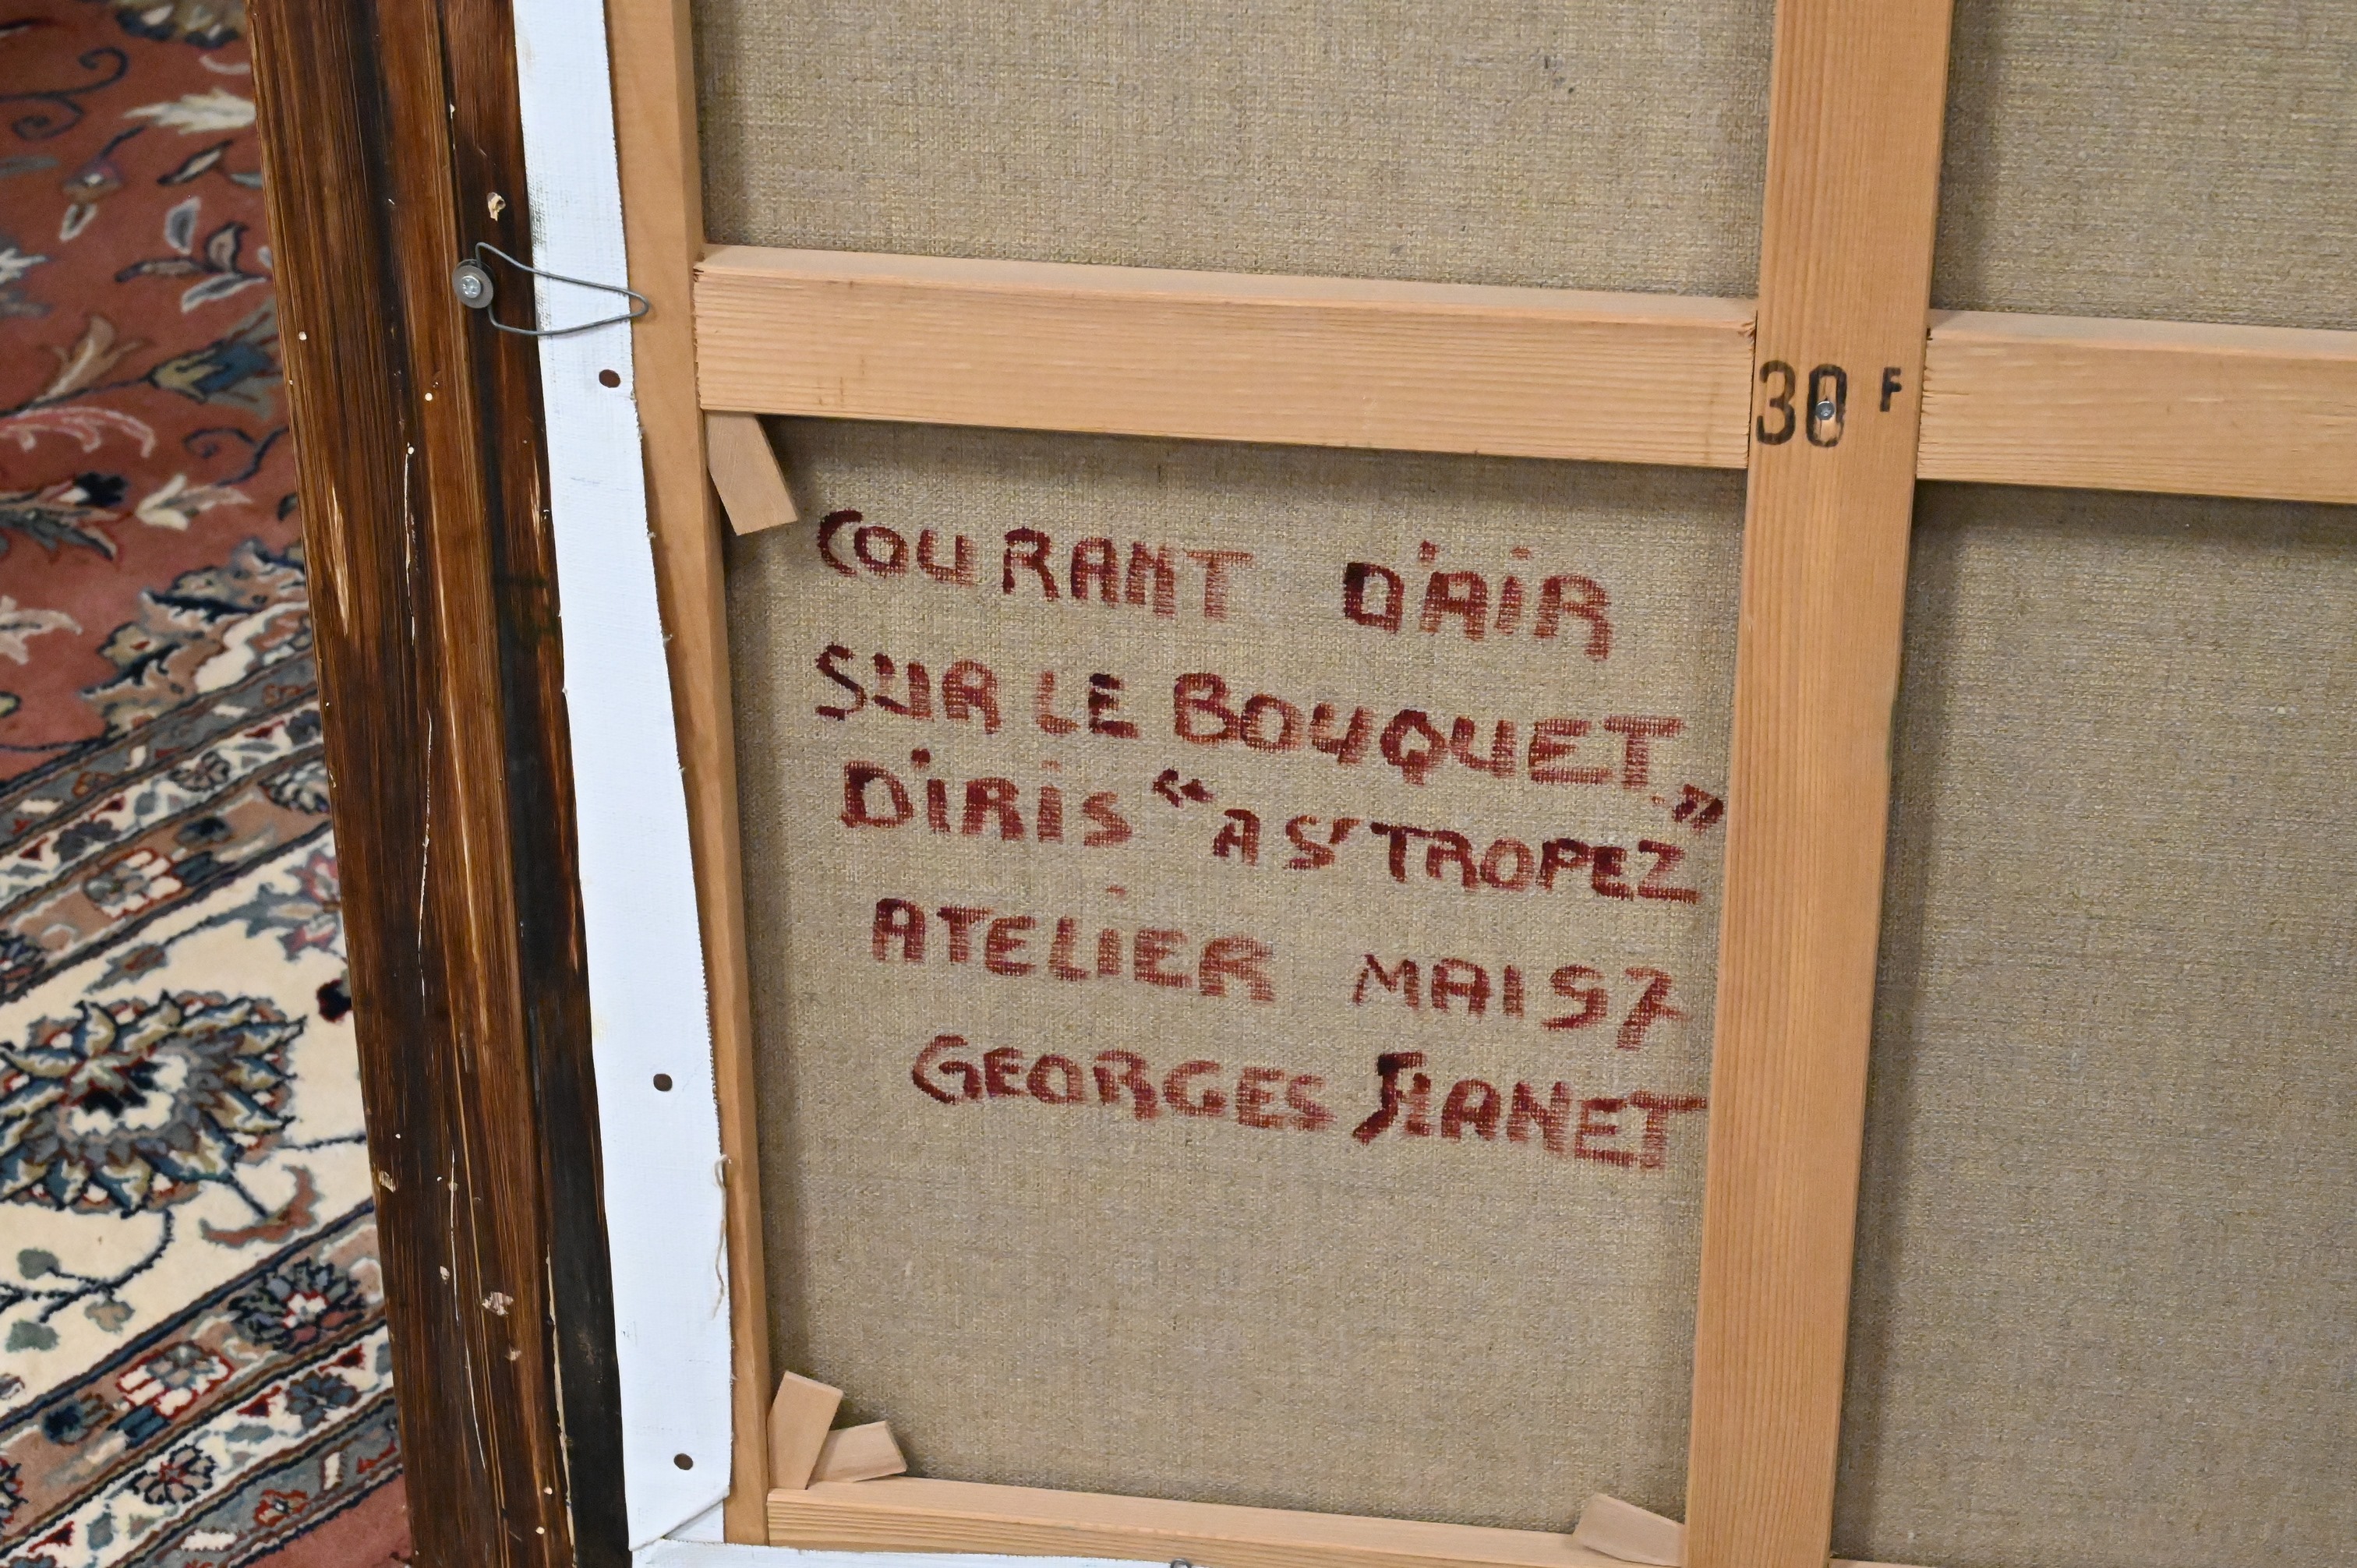 30 F
COURANT D'AIR
SUR LE BOUQUET
D'IRIS “A ST TROPEZ”
ATELIER MAI 97
GEORGES JEANET